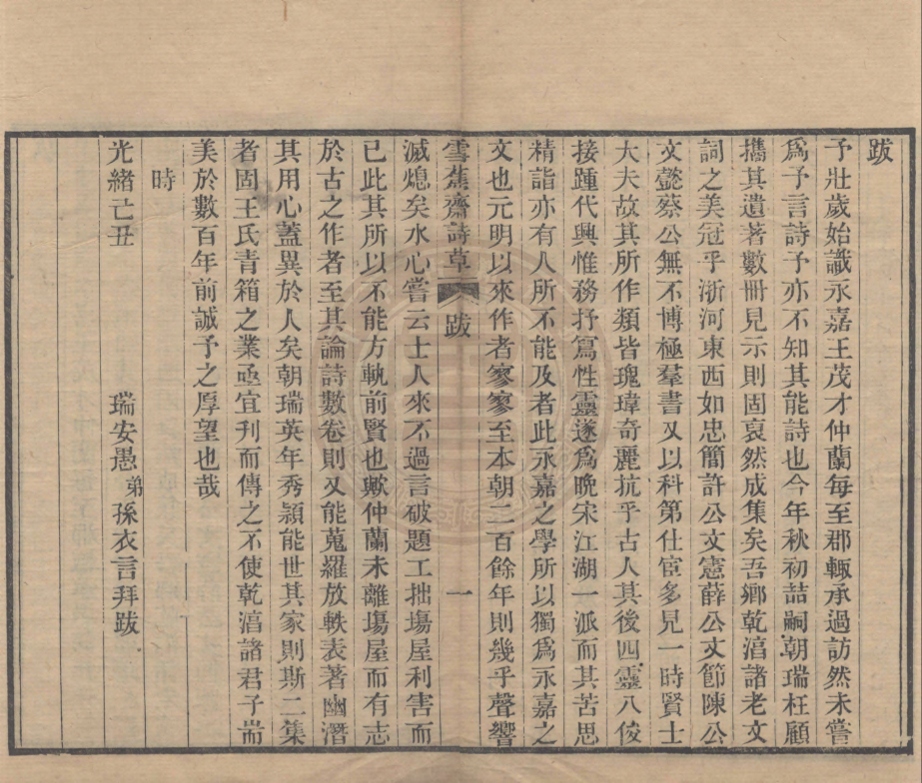 跋
予壯歲始識永嘉王茂才仲蘭每至郡輒承過訪然未嘗
爲予言詩予亦不知其能詩也今年秋初喆嗣朝瑞枉顧
攜其遺著數冊見示則固裒然成集矣吾鄉乾淳諸老文
詞之美冠乎浙河東西如忠簡許公文憲薛公文節陳公
文懿蔡公無不博極羣書又以科第仕宦多見一時賢士
大夫故其所作類皆瑰瑋奇麗抗乎古人其後四靈八俊
接踵代興惟務抒寫性靈遂爲晚宋江湖一派而其苦思
精詣亦有人所不能及者此永嘉之學所以獨爲永嘉之
文也元明以來作者寥寥至本朝二百餘年則幾乎聲響
雪蕉齋詩草 跋 一
滅熄矣水心嘗云士人來不過言破題工拙場屋利害而
已此其所以不能方軌前賢也歟仲蘭未離場屋而有志
於古之作者至其論詩數卷則又能蒐羅放軼表著幽潛
其用心蓋異於人矣朝瑞英年秀穎能世其家則斯二集
者固王氏青箱之業亟宜刋而傳之不使乾淳諸君子耑
美於數百年前誠予之厚望也哉
時
光緒己丑 瑞安愚弟孫衣言拜跋